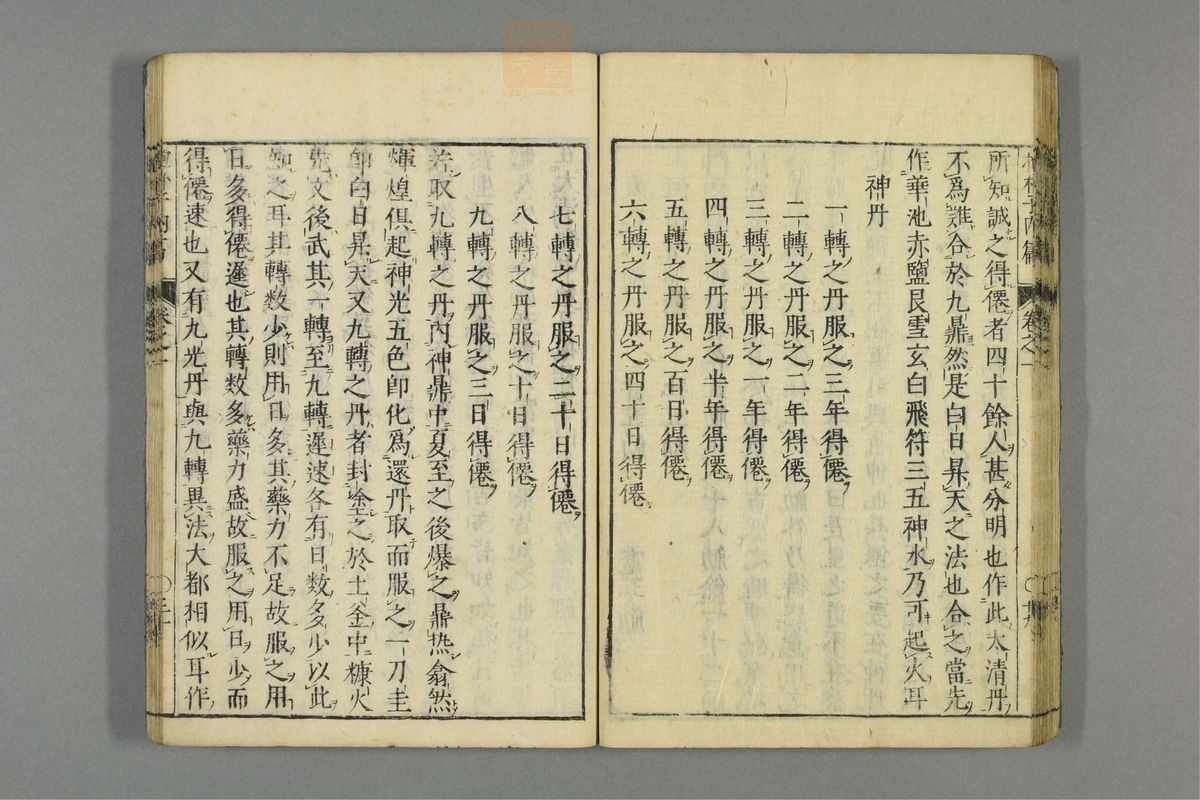 所知誠之得僊者四十餘人甚分明也作此太清丹
不爲難合於九鼎然是白日昇天之法也合之當先
作華池赤鹽艮雪玄白飛符三五神水乃可起火耳
神丹
一轉之丹服之三年得僊
二轉之丹服之二年得僊
三轉之丹服之一年得僊
四轉之丹服之半年得僊
五轉之丹服之百日得僊
六轉之丹服之四十日得僊
七轉之丹服之二十日得僊
八轉之丹服之十日得僊
九轉之丹服之三日得僊
若取九轉之丹內神鼎中夏至之後爆之鼎热翕然
煇煌俱起神光五色卽化爲還丹取而服之一刀圭
卽白日昇天又九轉之丹者封塗之於土釜中糠火
先文後武其一轉至九轉遲速各有日数多少以此
知之耳其轉数少則用日多其藥力不足故服之用
日多得僊遲也其轉数多藥力盛故服之用日少而
得僊速也又有九光丹與九轉異法大都相似耳作
zysj.com.cn